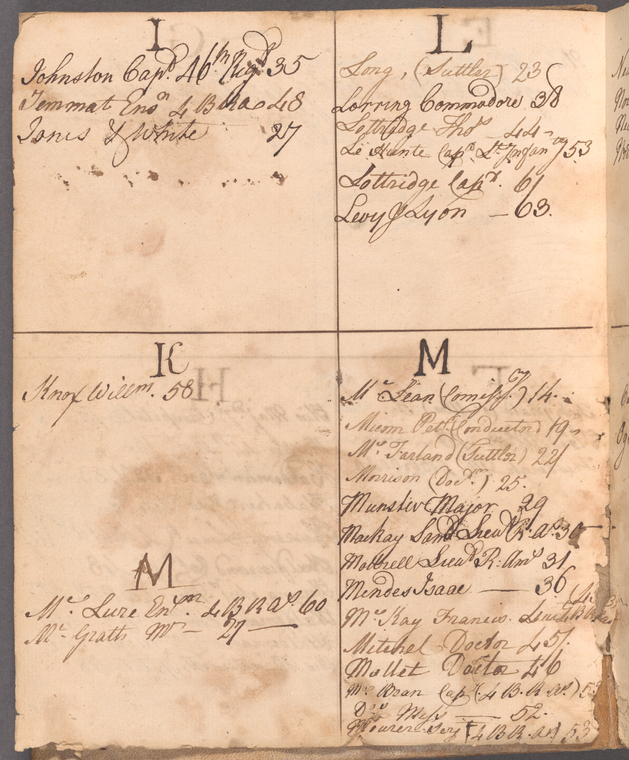 I
Johnston Capt. 46th Regt 35
Jemmat Ensn 4 B Ra 48
Jones & White 27
K
Knox Willm. 58
M
Mc Lure Ensn 4 B R As. 60
Mc Gratts Mr — 27 —
L
Long, (Suttler) 23
Lorring Commodore 38
Lottridge Thos. 44
Le Hunte Capt. Lt. 53
Lottridge Capt. 61
Levy & Lyon — 63.
M
Mc Lean (Comissy) 14.
Micon Pet. (Conductor) 19
Mc Farland (Suttler) 22
Morrison (Doct.) 25.
Munster Major 29
Mackay Saml Lieut R. As. 30
Lieut R. Ams 31
Mendes Isaac — 36
Mc Kay Francis Lieut
Mitchel Doctor 45
Mallet Doctor 46
Mc Bean Capt (4 B. R. As.) 53
Do. Mess — 52.
Serjt 4 B R. As) 53